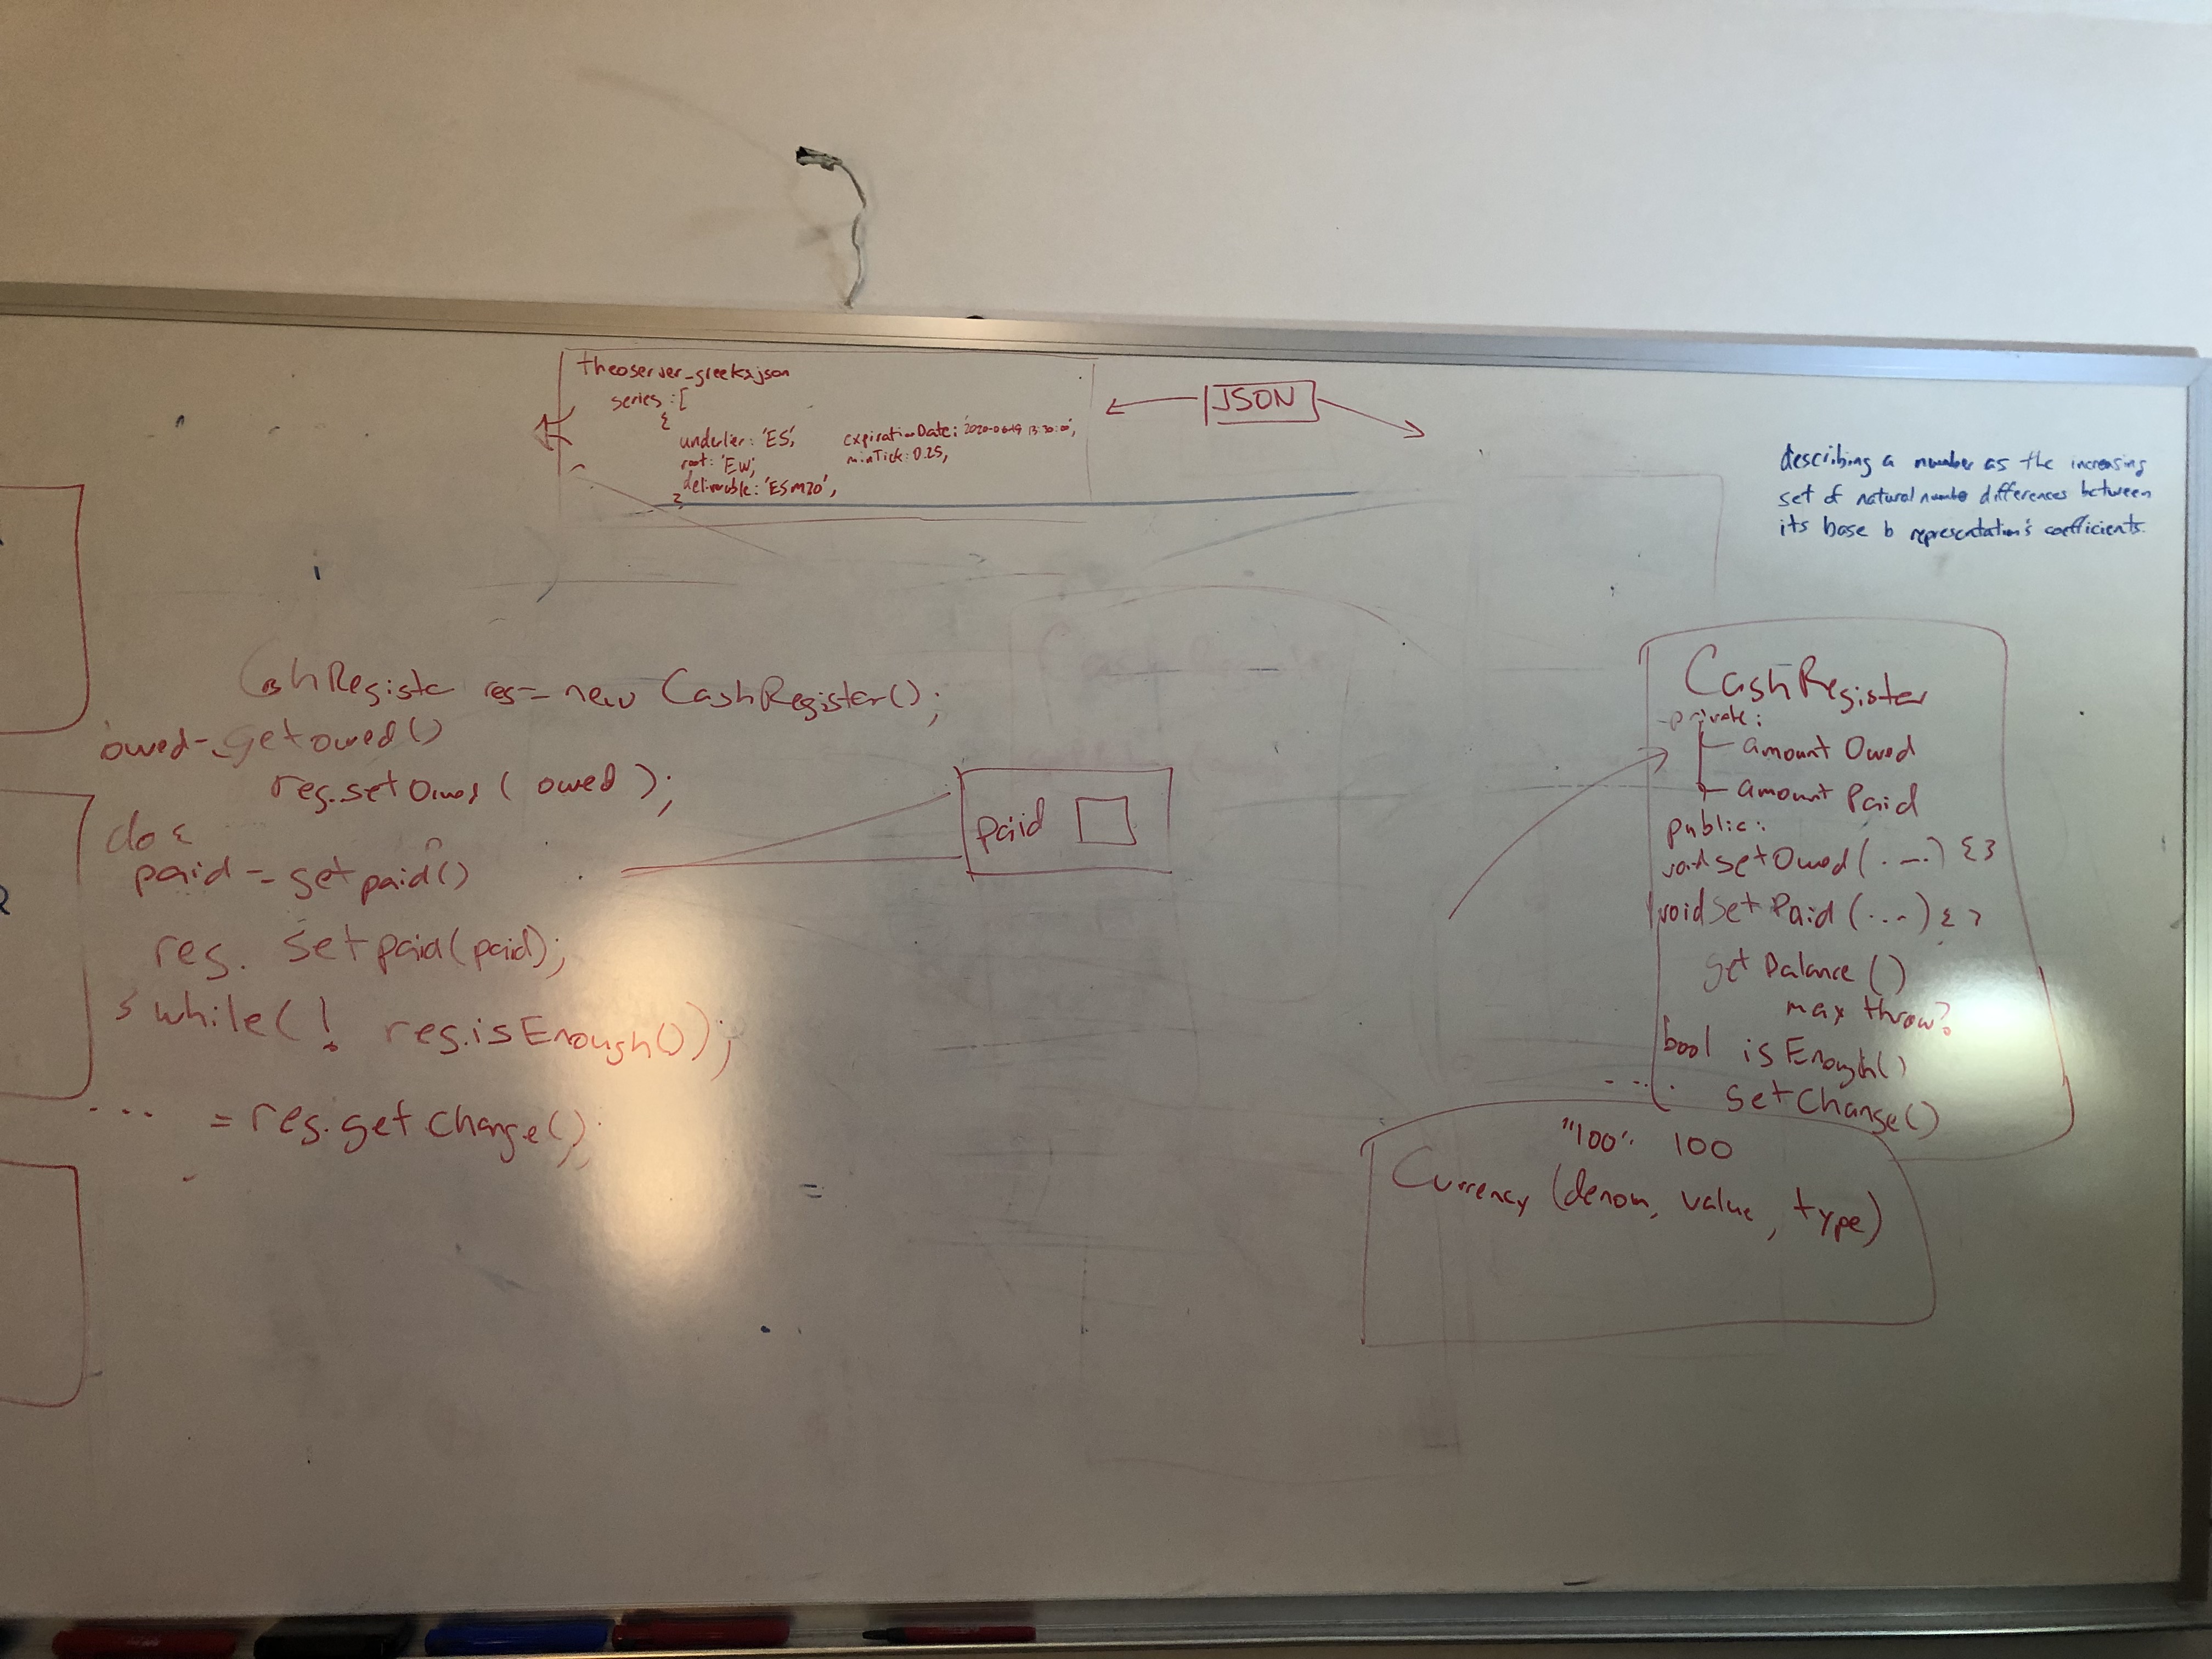 theoserver_greeks.json
series:[
{
underlier: 'ES', expirationDate: '2020-06-19 13:30:00',
root: 'EW', minTick: 0.25,
deliverable: 'ESM20',
}
JSON
describing a number as the increasing
set of natural number differences between
its base b representation's coefficients.
CashRegister reg = new CashRegister();
owed = getowed()
reg.setOwed(owed);
do {
paid = getpaid()
reg. setpaid(paid);
} while(! reg.isEnough());
... = reg.getChange();
=
paid
CashRegister
private:
amount Owed
amount Paid
public:
void setOwed(...) {}
void set Paid (...) {}
get Balance ()
max throw?
bool isEnough()
... getChange()
"100": 100
Currency (denom, value, type)